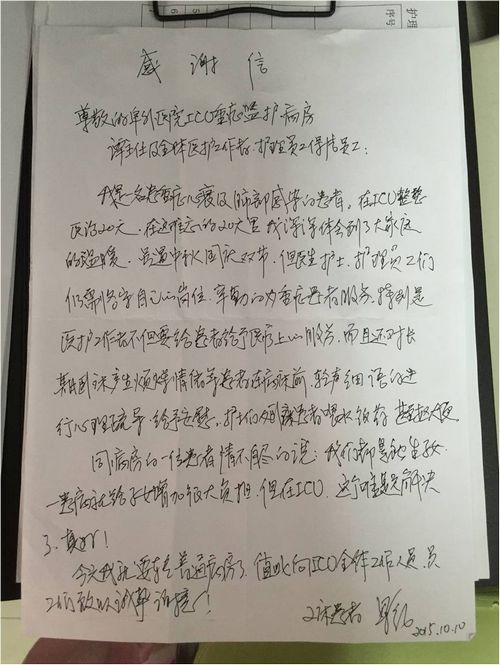 护理
序号
感谢信
尊敬的阜外医院ICU重症监护病房
谭主任及全体医护工作者、护理员工保洁员工:
我是一名患重症心衰及肺部感染的患者。在ICU整整
医治20天。在这难忘的20天里我深深体会到了大家庭
的温暖。虽遇中秋国庆双节,但医生护士、护理员工们
仍需坚守自己的岗位,辛勤的为重症患者服务。特别是
医护工作者不但要给患者给予医疗上的服务,而且还对长
期卧床产生烦燥情绪等患者在病床前,轻声细语的进
行心理疏导,给予安慰。护士们对患者喂水喂药
同病房的一位患者情不自尽的说:我们都是独生子女
患病就给子女增加很大负担,但在ICU,这个难题解决
了。真好!
今天我就要转去普通病房了,值此向ICU全体工作人员、员
工们致以诚挚谢意!
2床患者
2015.10.10